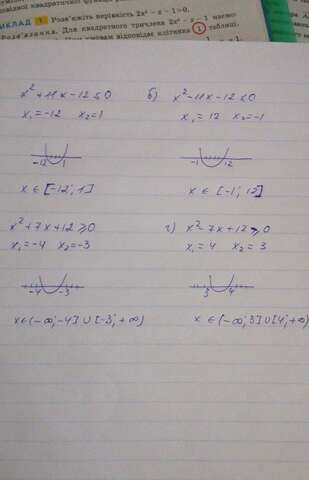 ИКЛАД 1 Розв'яжіть нерівність 2x² – x – 1 > 0.
Розв'язання. Для квадратного тричлена 2x² – x – 1 маємо
умовам відповідає клітинка 1 таблиці.
x²+11x-12≤0
x₁=-12 x₂=1
-12 1
x ∈ [-12; 1]
б) x²-11x-12≤0
x₁= 12 x₂=-1
-1 12
x ∈ [-1; 12]
x²+7x+12≥0
x₁=-4 x₂=-3
-4 -3
x∈(-∞;-4]∪[-3;+∞)
г) x²-7x+12≥0
x₁=4 x₂= 3
3 4
x ∈(-∞;3]∪[4;+∞)